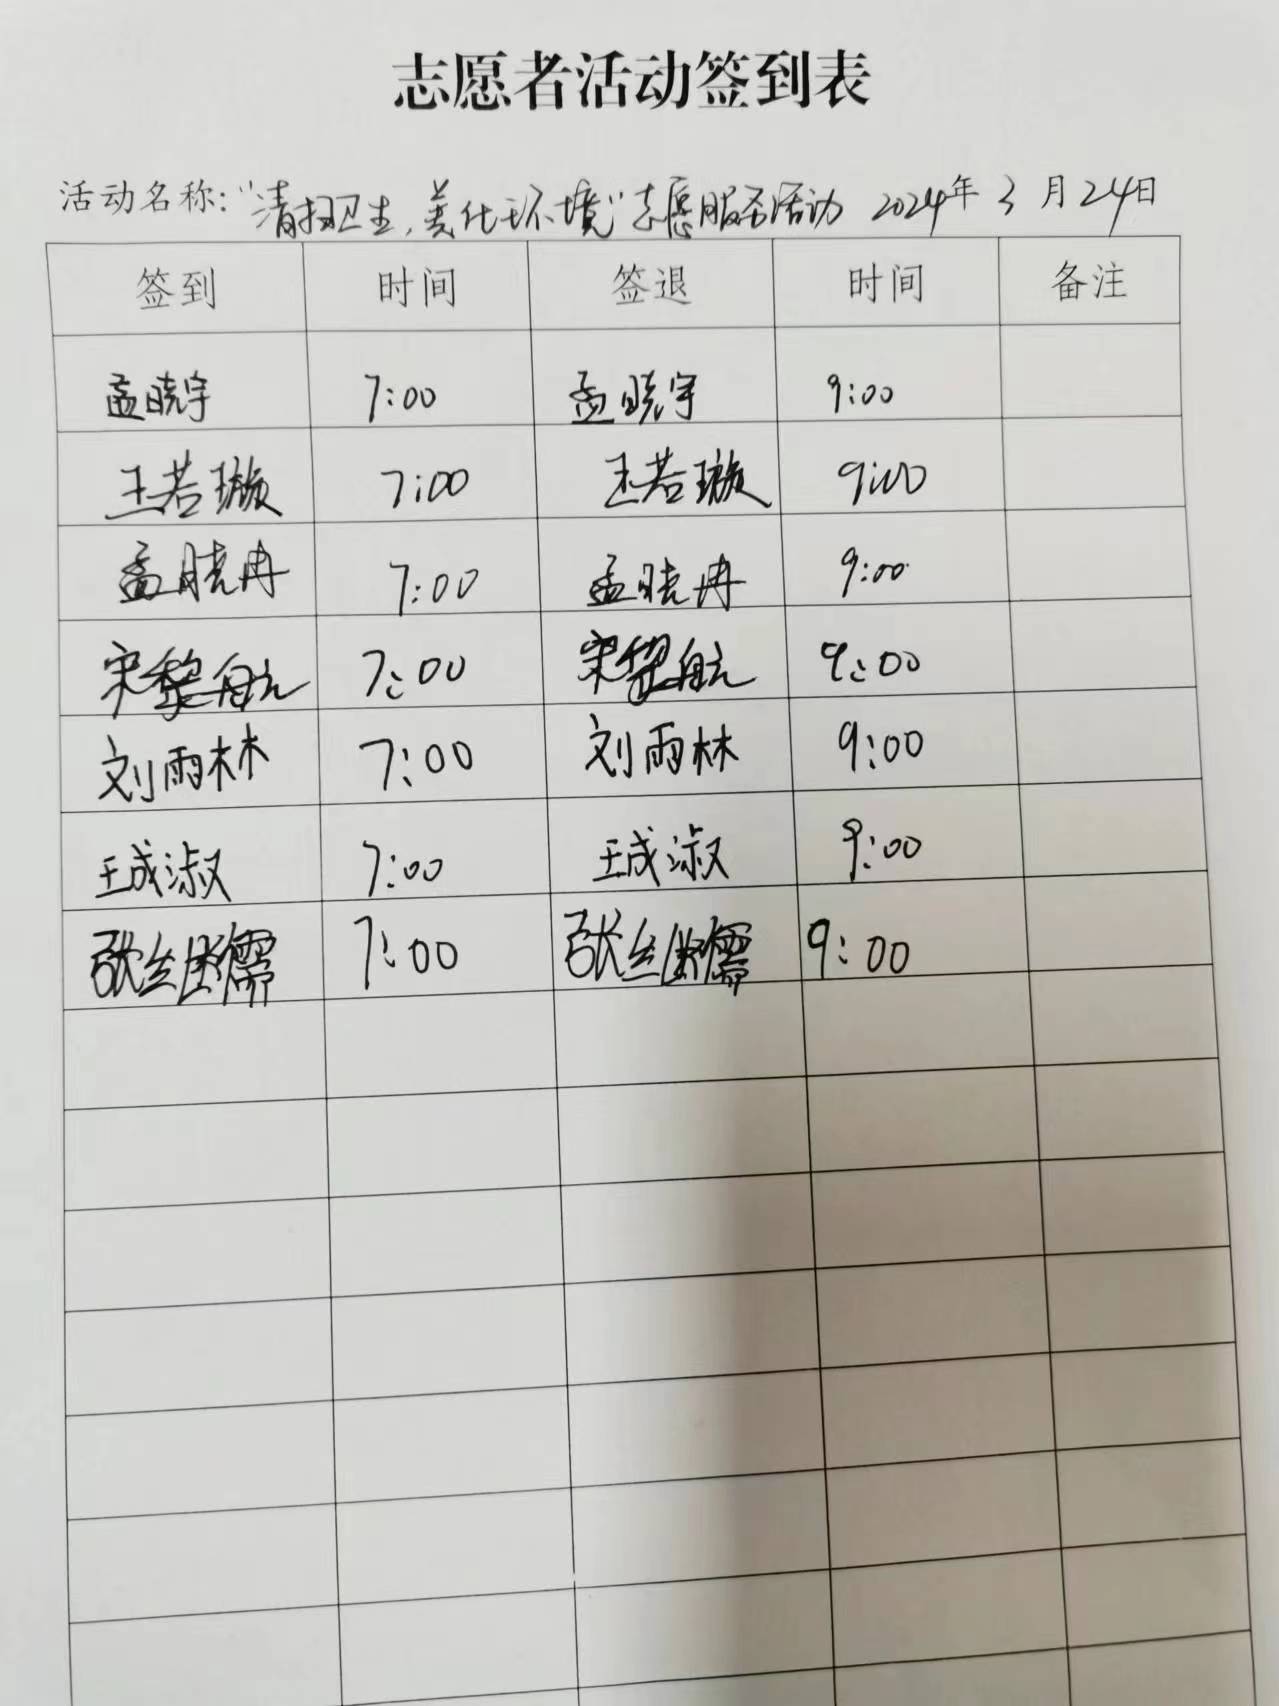 志愿者活动签到表
活动名称:“清扫卫生,美化环境”志愿服务活动 2024年3月24日
签到 时间 签退 时间 备注
孟晓宇 7:00 孟晓宇 9:00
王若璇 7:00 王若璇 9:00
孟晓冉 7:00 孟晓冉 9:00
宋黎航 7:00 宋黎航 9:00
刘雨林 7:00 刘雨林 9:00
王成淑 7:00 王成淑 9:00
张 7:00 张 9:00